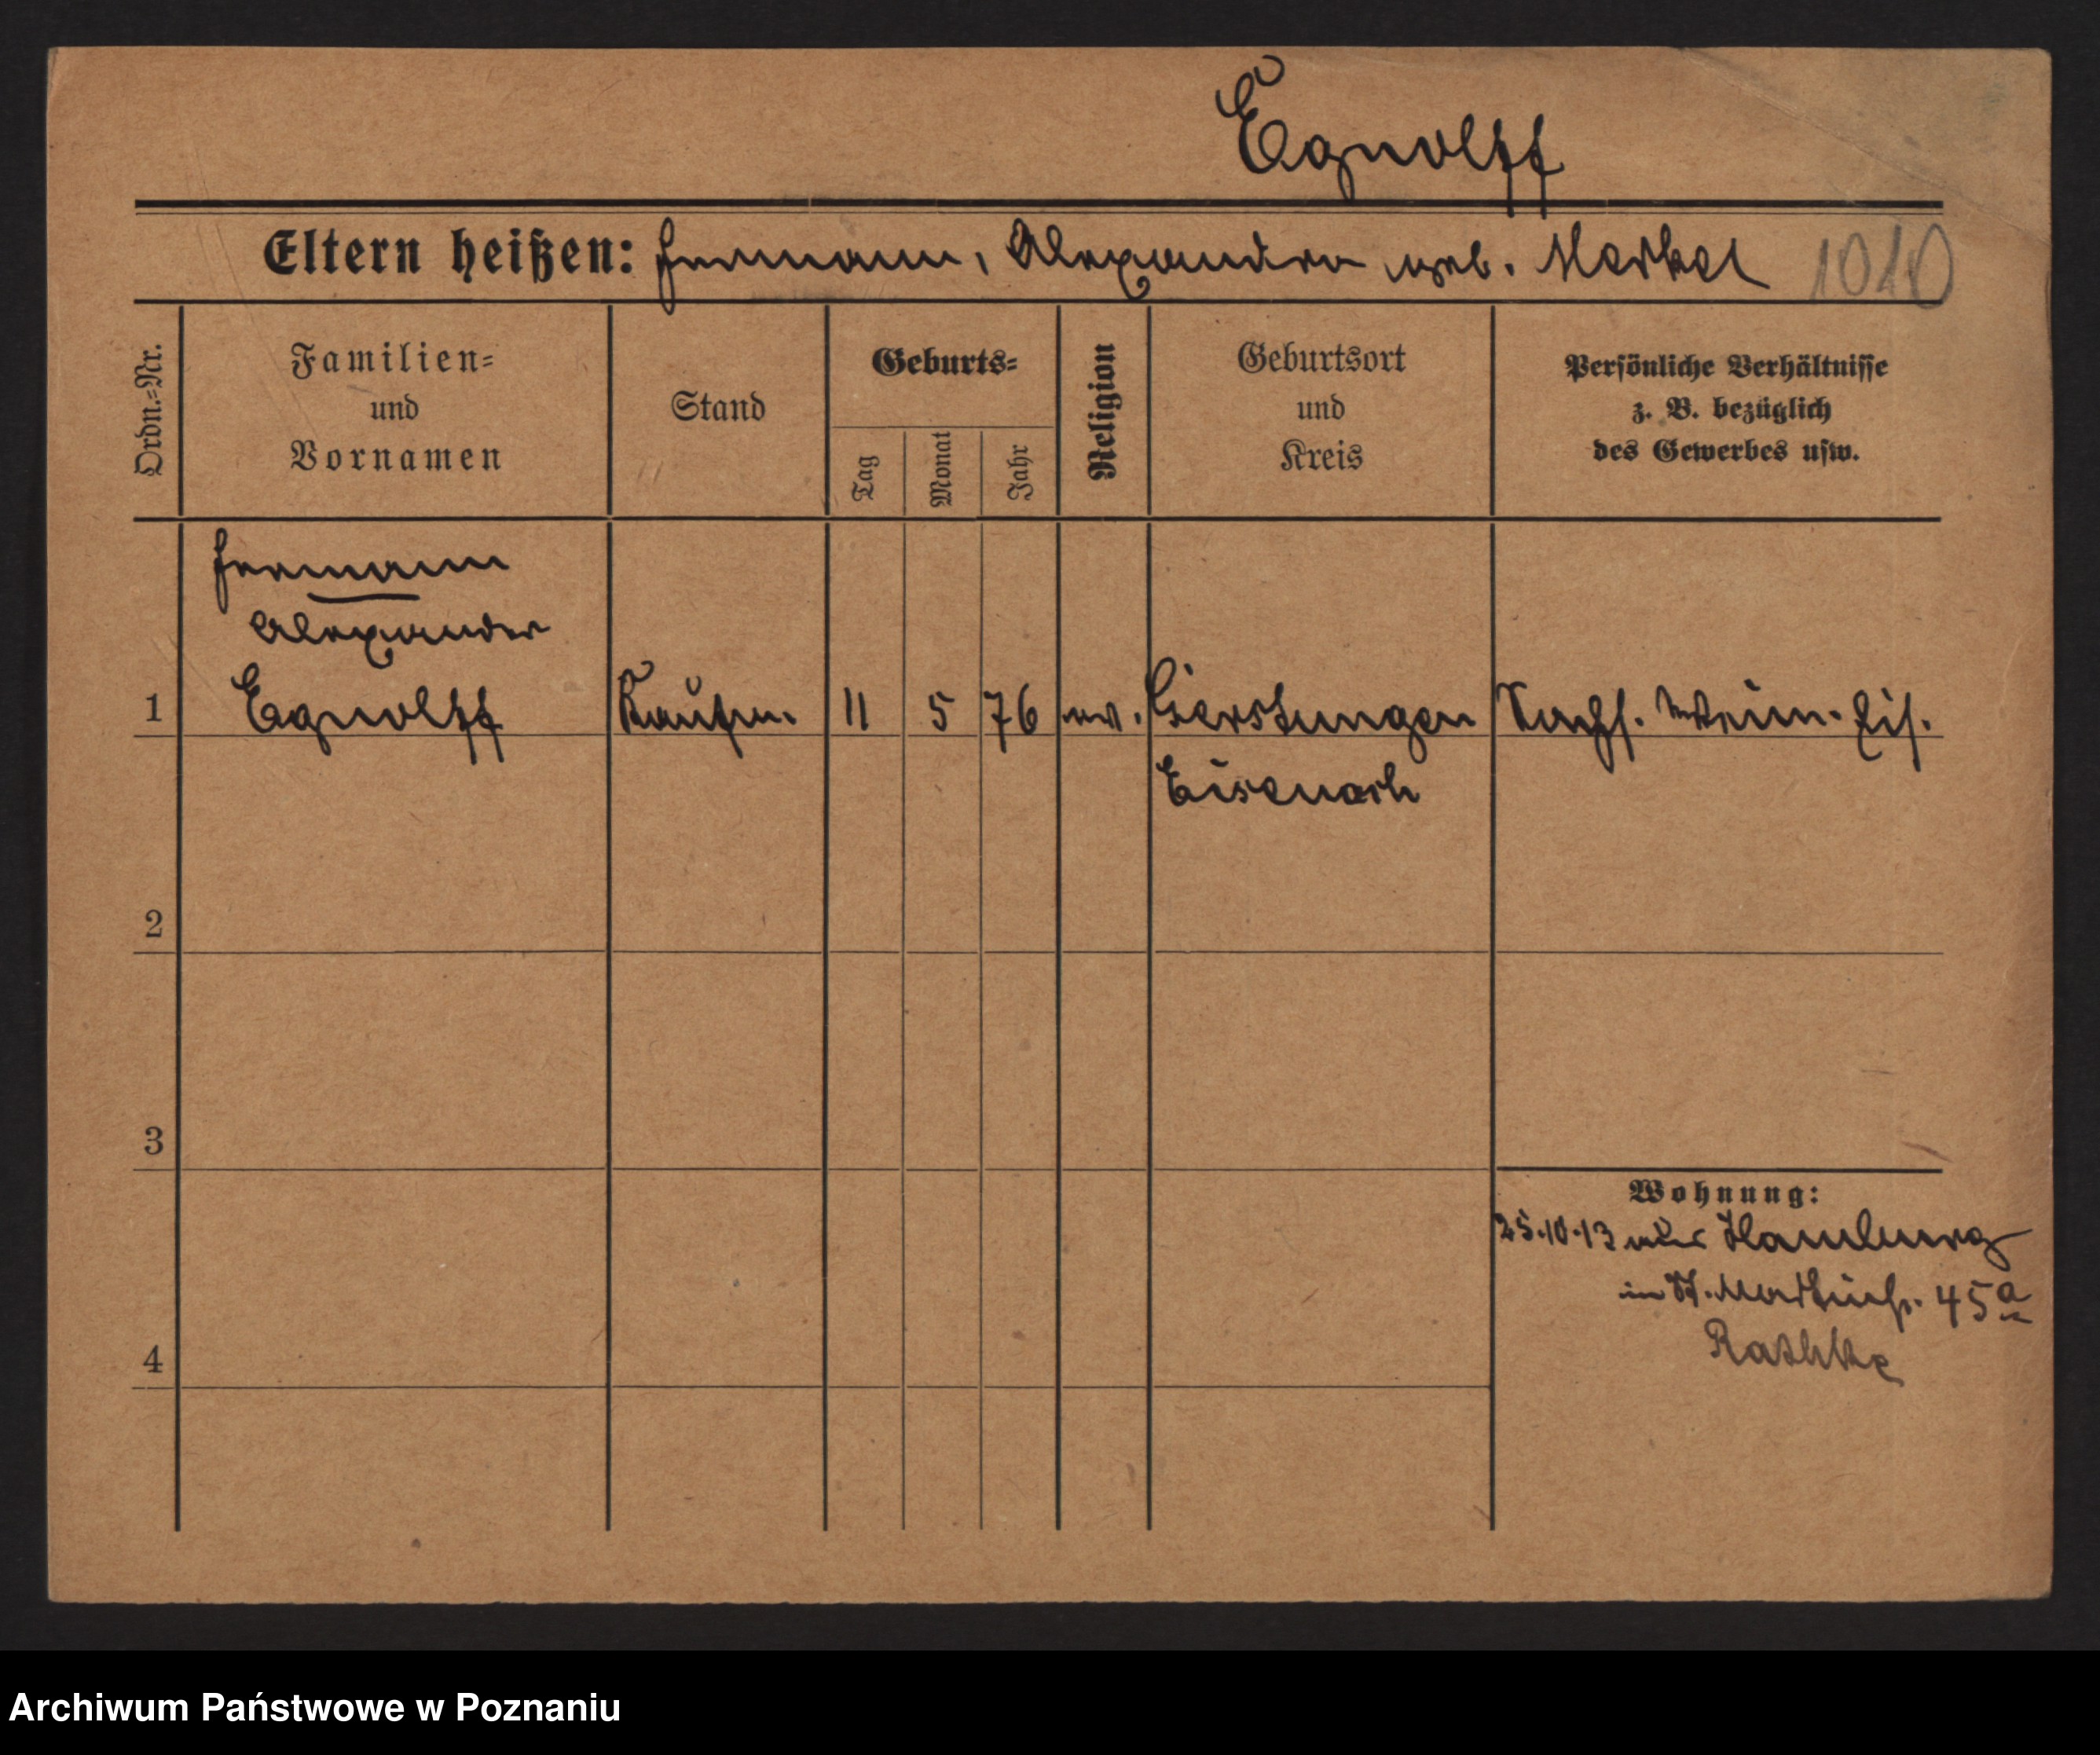 Egnolff
Eltern heißen: Hermann, Alexandra geb. Merkel 1010
Ordn.=Nr.
Familien=
und
Vornamen
Stand
Geburts=
Tag
Monat
Jahr
Religion
Geburtsort
und
Kreis
Persönliche Verhältnisse
z. B. bezüglich
des Gewerbes usw.
Hermann
Alexander
1 Egnolff Kaufm. 11 5 76 ev. Gerstungen Sachs. Weim. Eis.
Eisenach
2
3
4
Wohnung:
25.10.13 aus Hamburg
in St. Martinstr. 45a
Rathke
Archiwum Państwowe w Poznaniu